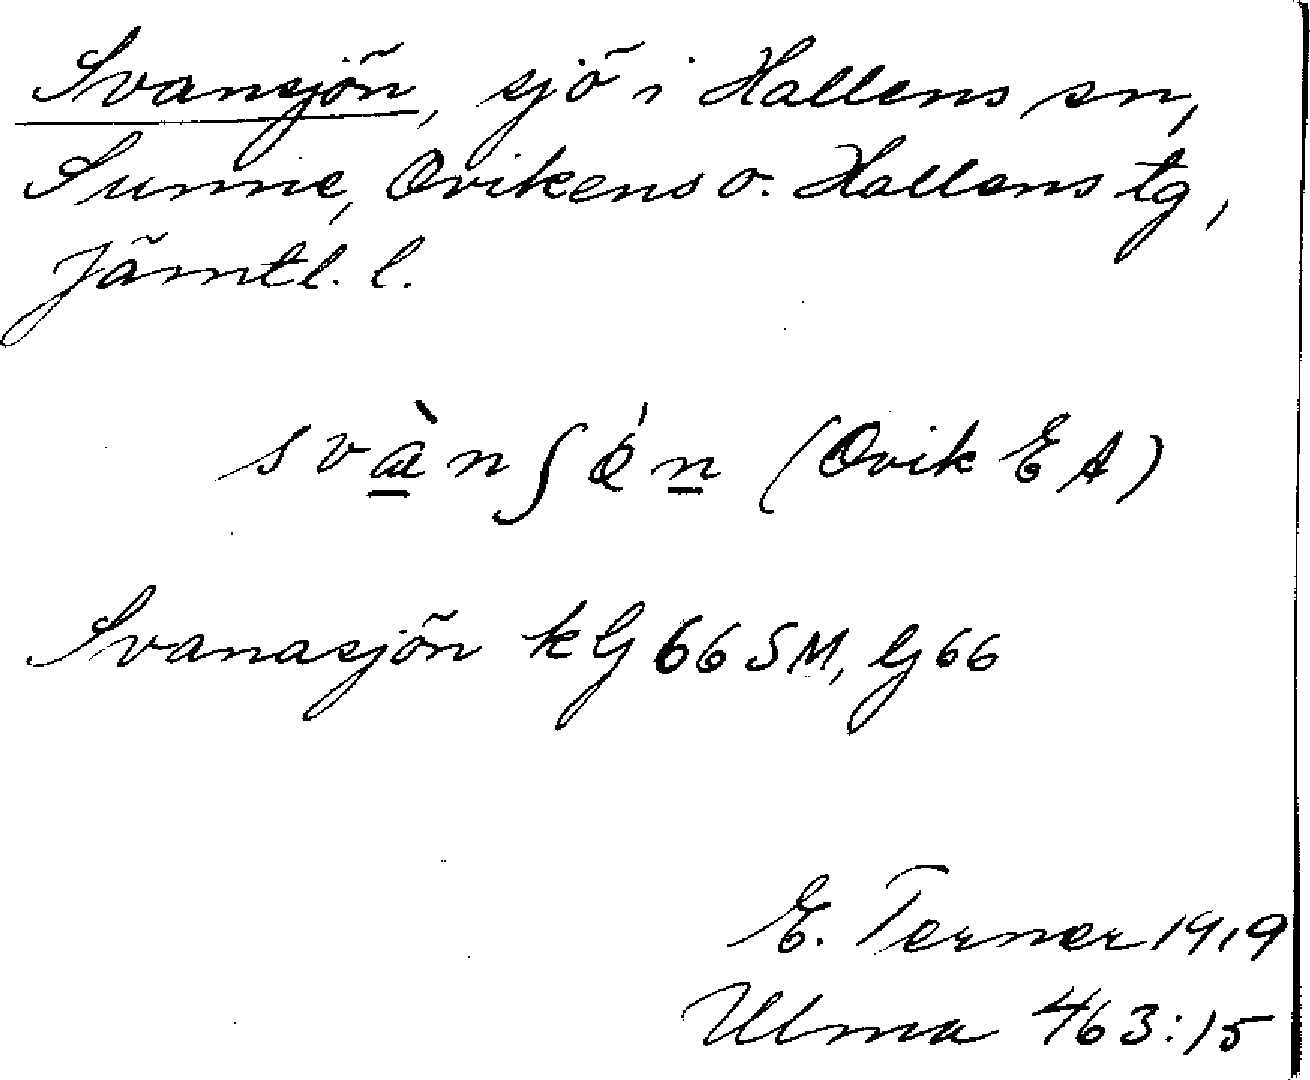 Svansjön, sjö i Hallens sn,
Sunne, Ovikens o. Hallens tg,
Jämtl. l.
svæ̀nʃǿn (Ovik EA)
Svanasjön kG 66 SM, G 66
E. Terner 1919
Ulma 463:15